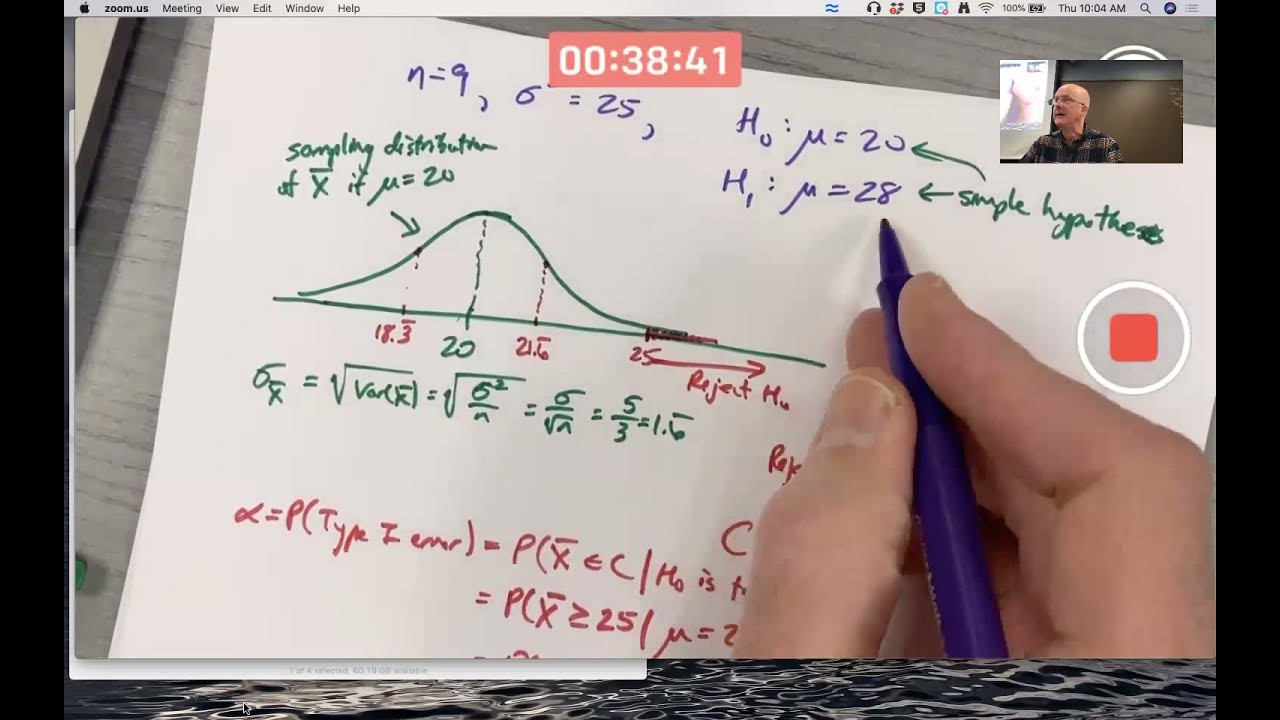 zoom.us Meeting View Edit Window Help 100% Thu 10:04 AM
00:38:41
n=9, σ² = 25,
H₀: μ = 20
H₁: μ = 28 ← simple hypotheses
sampling distribution
of X̅ if μ=20
18.3̅ 20 21.6̅ 25
Reject H₀
σ_X̅ = √Var(X̅) = √σ²/n = σ/√n = 5/3 = 1.6̅
α = P(Type I error) = P(X̅ ∈ C | H₀ is
C
= P(X̅ ≥ 25 | μ = 2
1 of 4 selected, 60.19 GB available